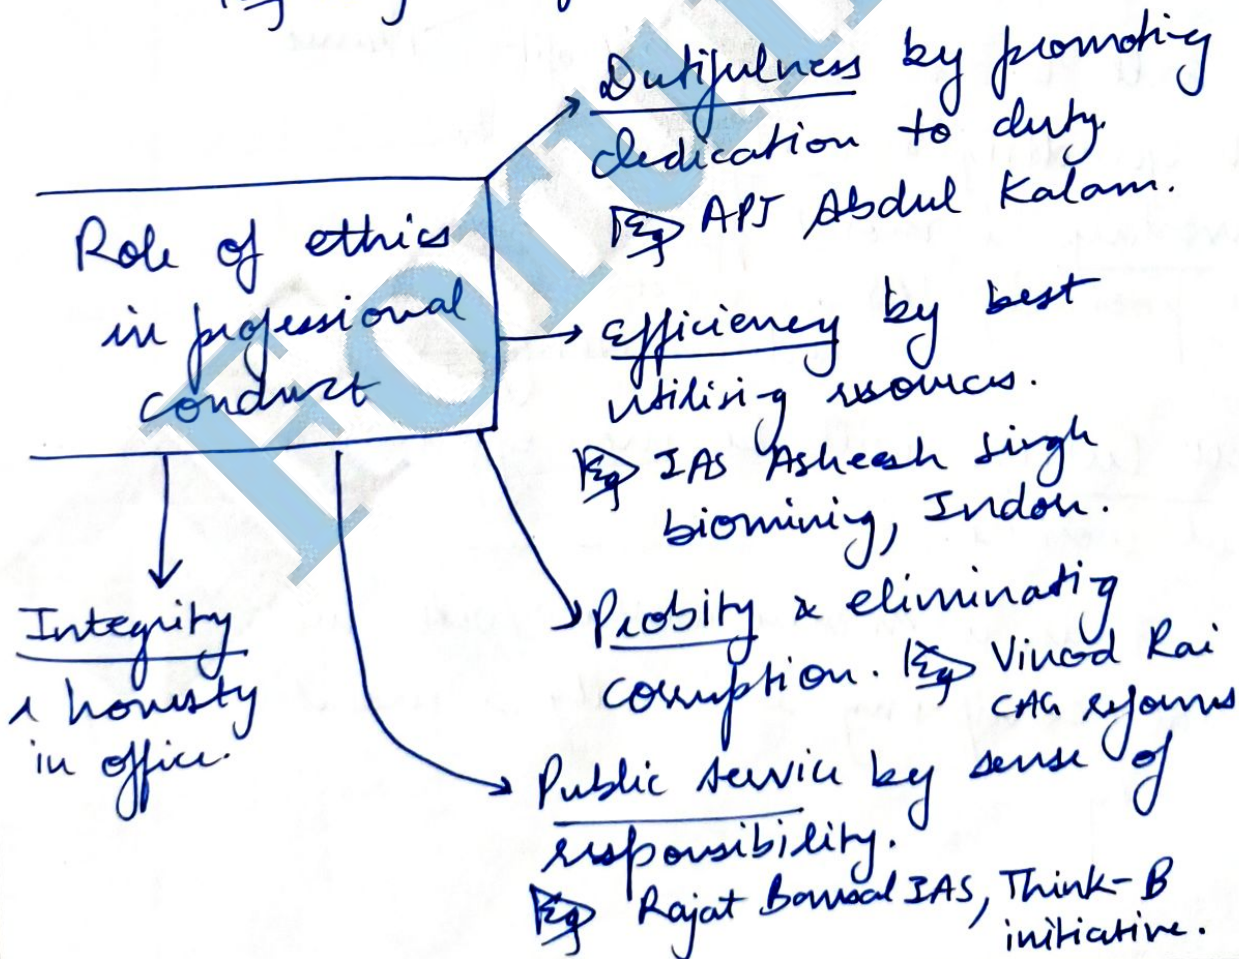 Role of ethics
in professional
conduct
Dutifulness by promoting
dedication to duty.
Eg APJ Abdul Kalam.
Efficiency by best
utilising resources.
Eg IAS Asheesh Singh
biomining, Indore.
Probity & eliminating
corruption. Eg Vinod Rai
CAG reforms
Public service by sense of
responsibility.
Eg Rajat Bansal IAS, Think-B
initiative.
Integrity
& honesty
in office.
Forum